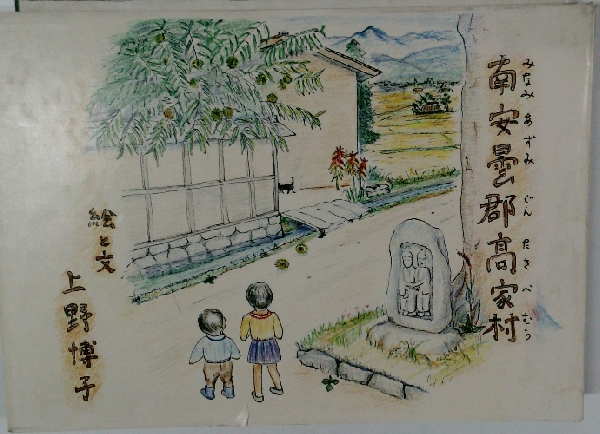 南安曇郡高家村
みなみあずみぐんたきべむら
絵と文
上野博子